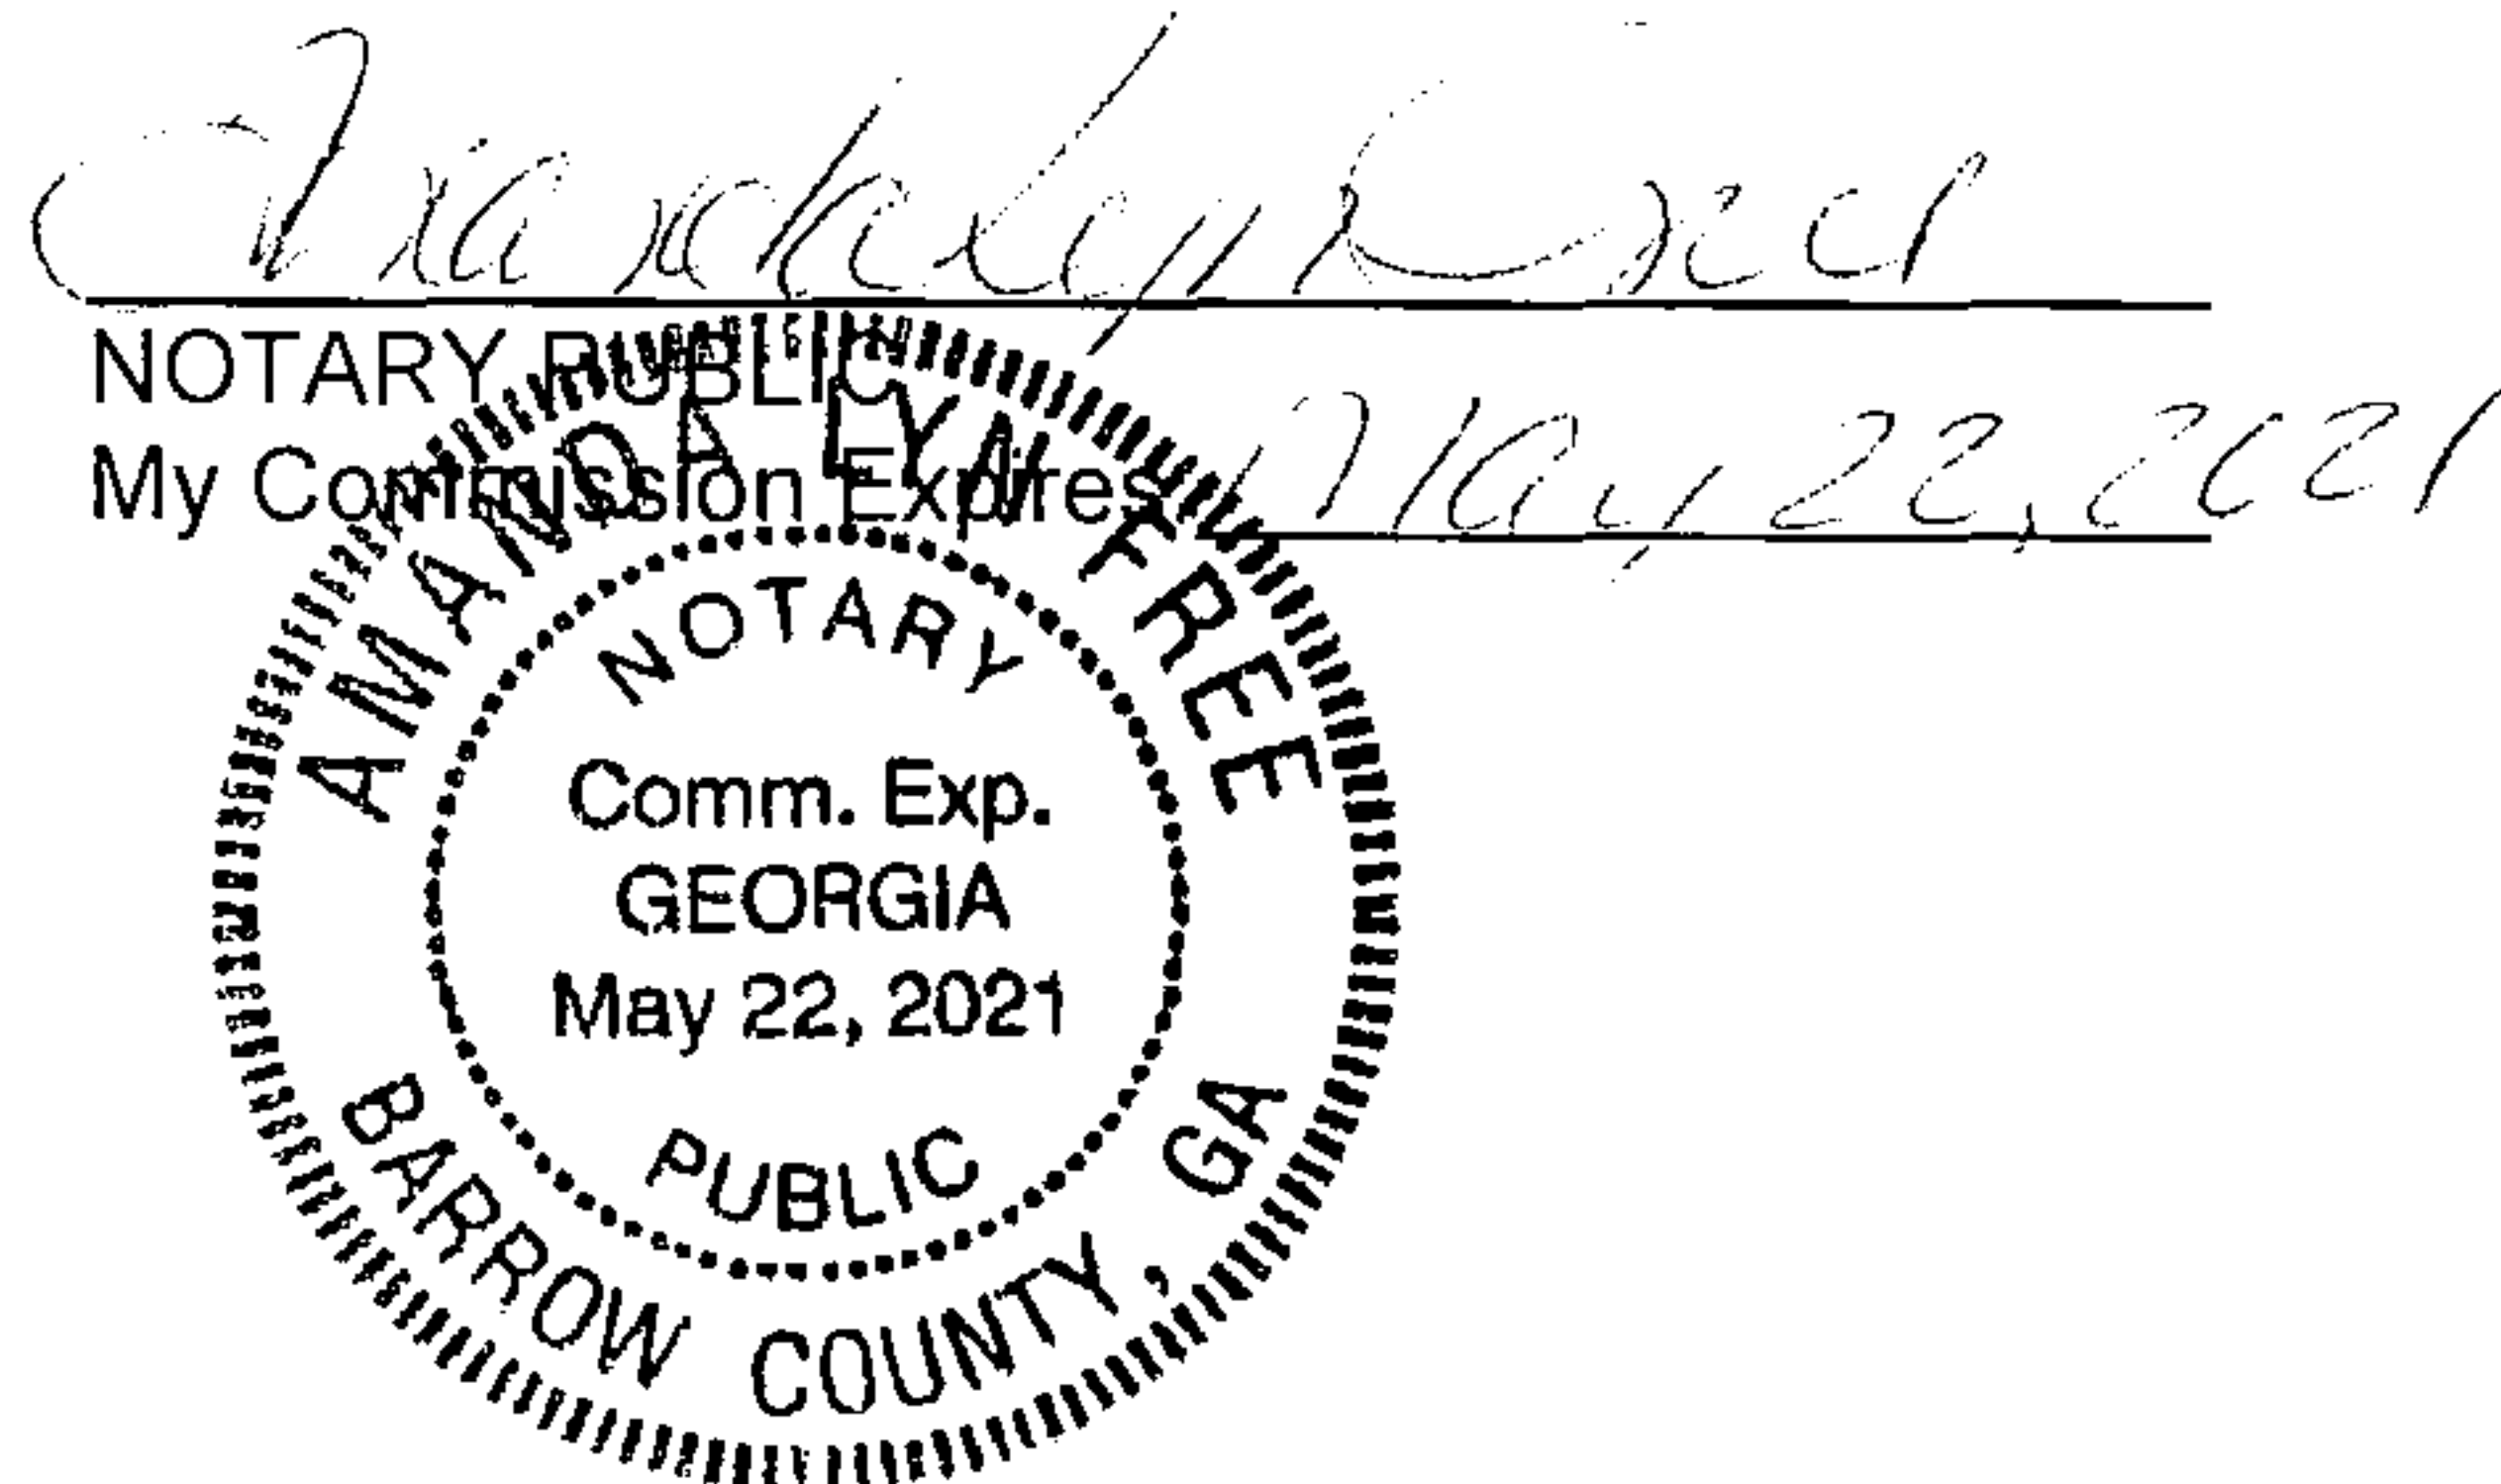 NOTARY PUBLIC
My Commission Expires May 22, 2021
AMANDA LYN FREE
NOTARY
Comm. Exp.
GEORGIA
May 22, 2021
PUBLIC
BARROW COUNTY, GA